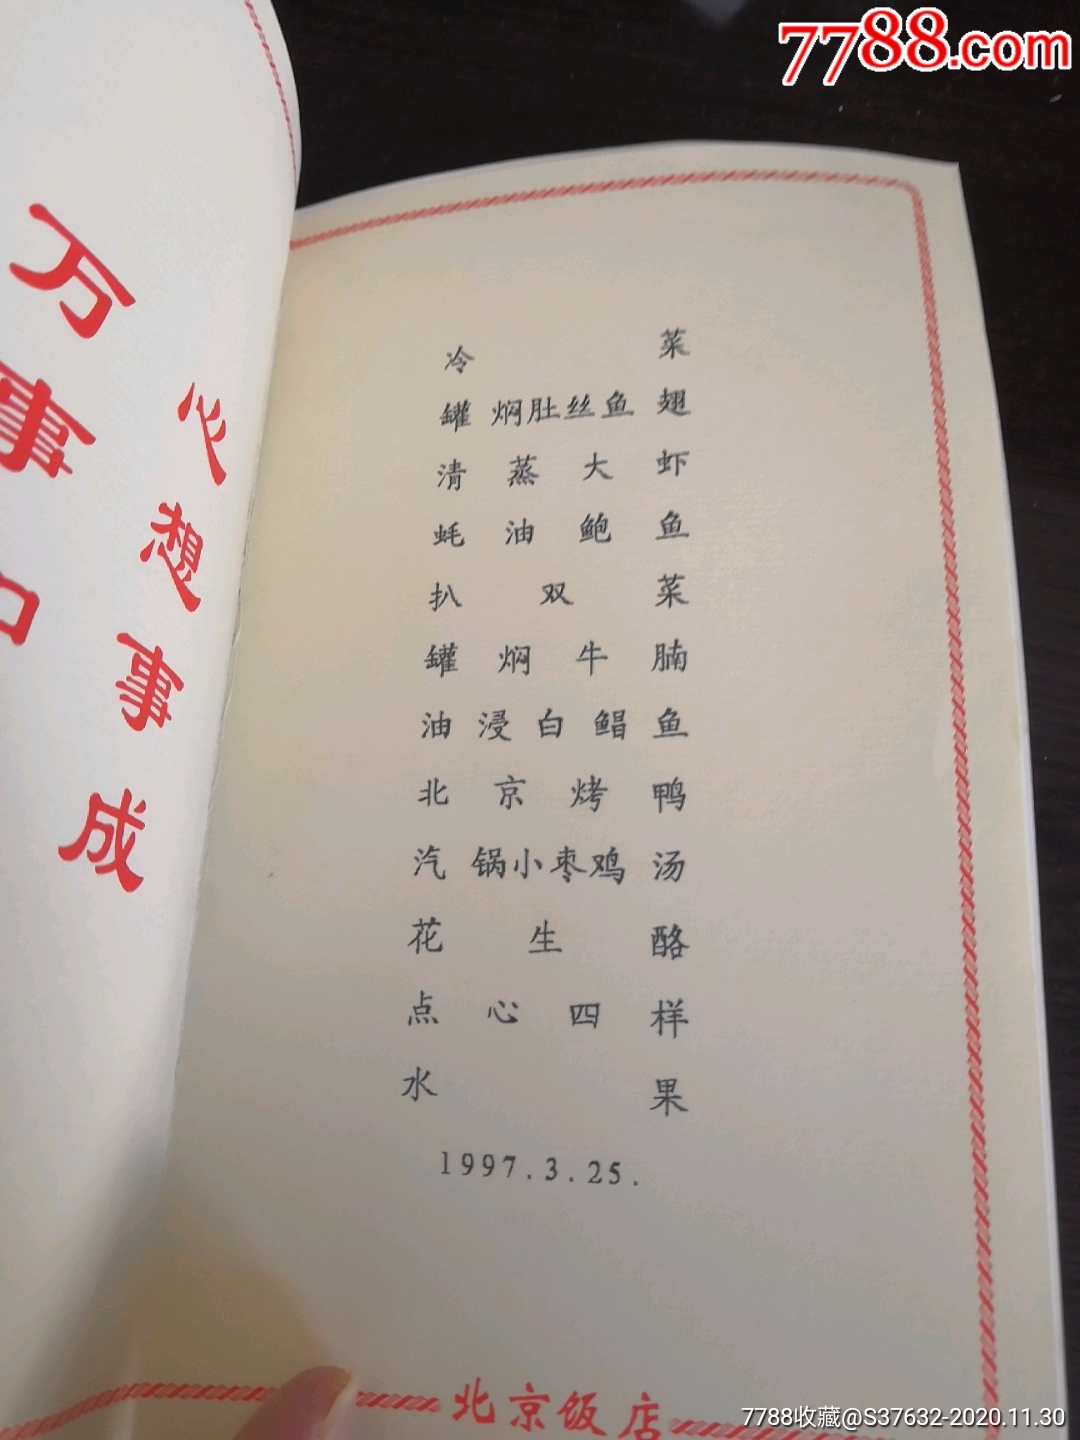 7788.com
心想事成
万事
冷菜
罐焖肚丝鱼翅
清蒸大虾
蚝油鲍鱼
扒双菜
罐焖牛腩
油浸白鲳鱼
北京烤鸭
汽锅小枣鸡汤
花生酪
点心四样
水果
1997.3.25.
北京饭店
7788收藏@S37632-2020.11.30